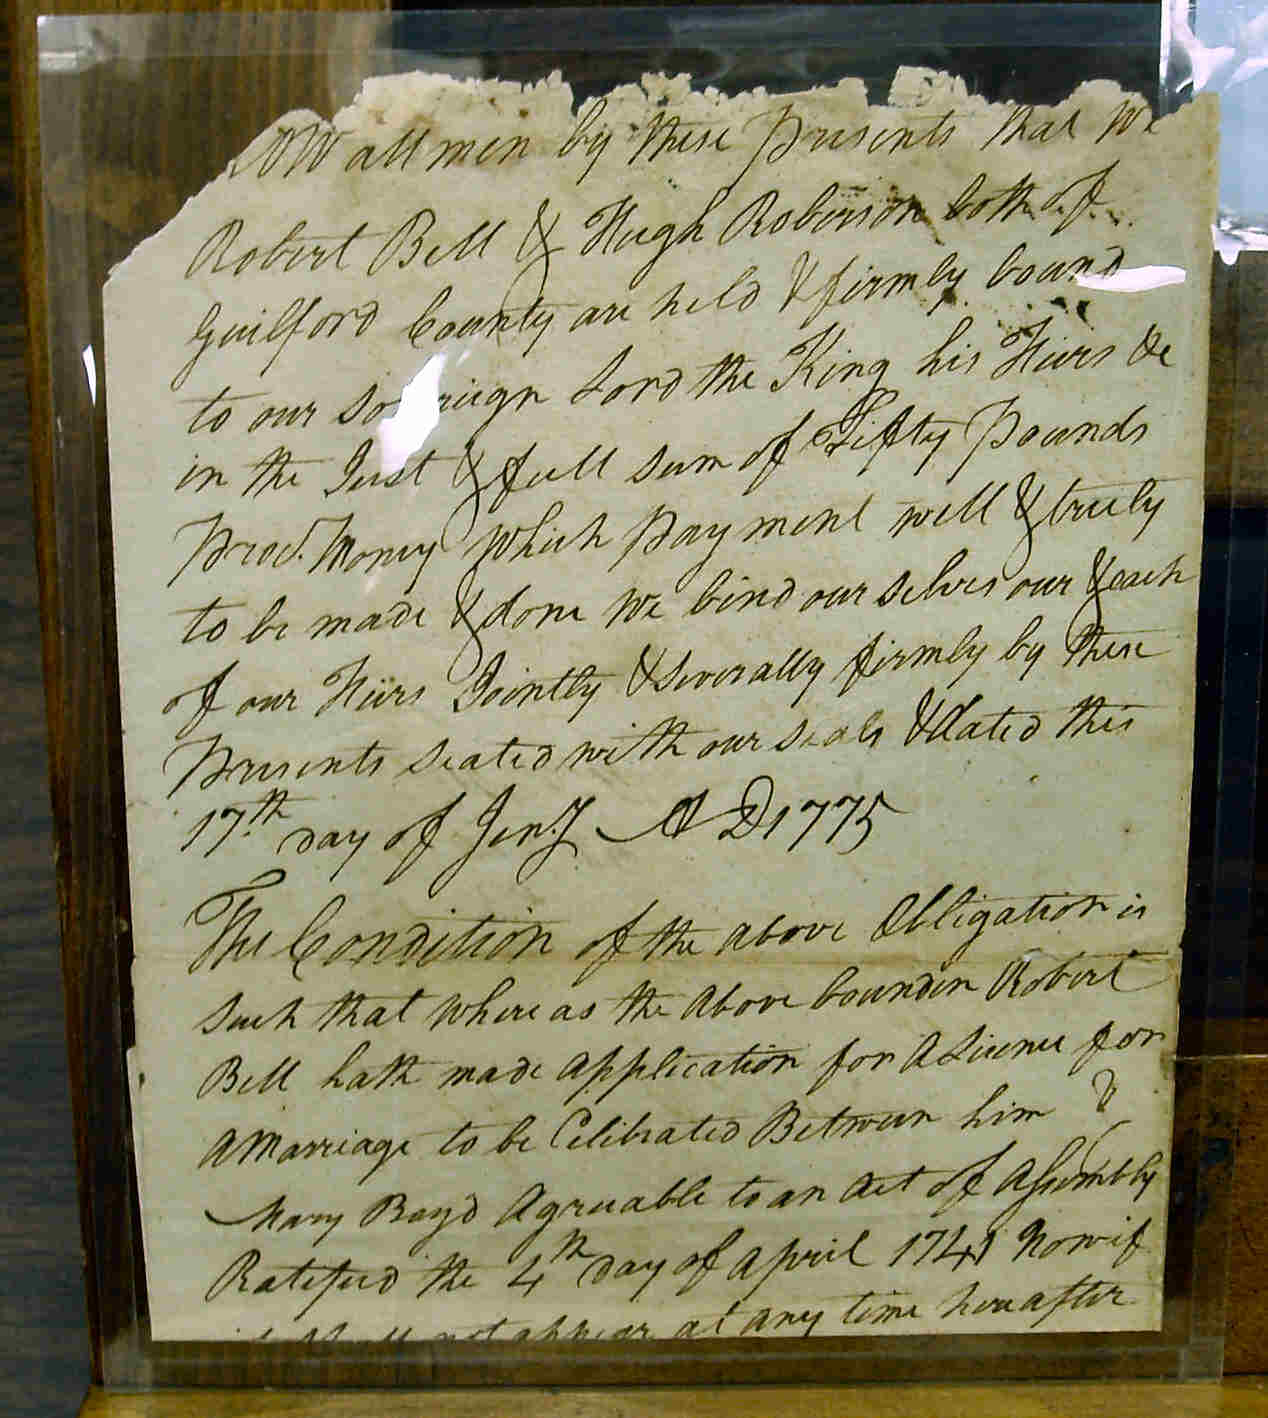 now all men by these Presents that we
Robert Bell & Hugh Roberson both of
Guilford County are held & firmly bound
to our Sovereign Lord the King his Heirs &c
in the Just & full sum of Fifty Pounds
Proc. Money which Payment well & truly
to be made & done we bind our selves our & each
of our Heirs Jointly & Severally firmly by these
Presents sealed with our seals & dated this
17th day of Jenry AD 1775
The Condition of the above Obligation is
Such that whereas the above bounden Robert
Bell hath made application for a Lisence for
a Marriage to be Celibrated Between him &
Mary Boyd Agreeable to an Act of Assembly
Ratefied the 4th day of April 1741 Now if
it shall not appear at any time hereafter